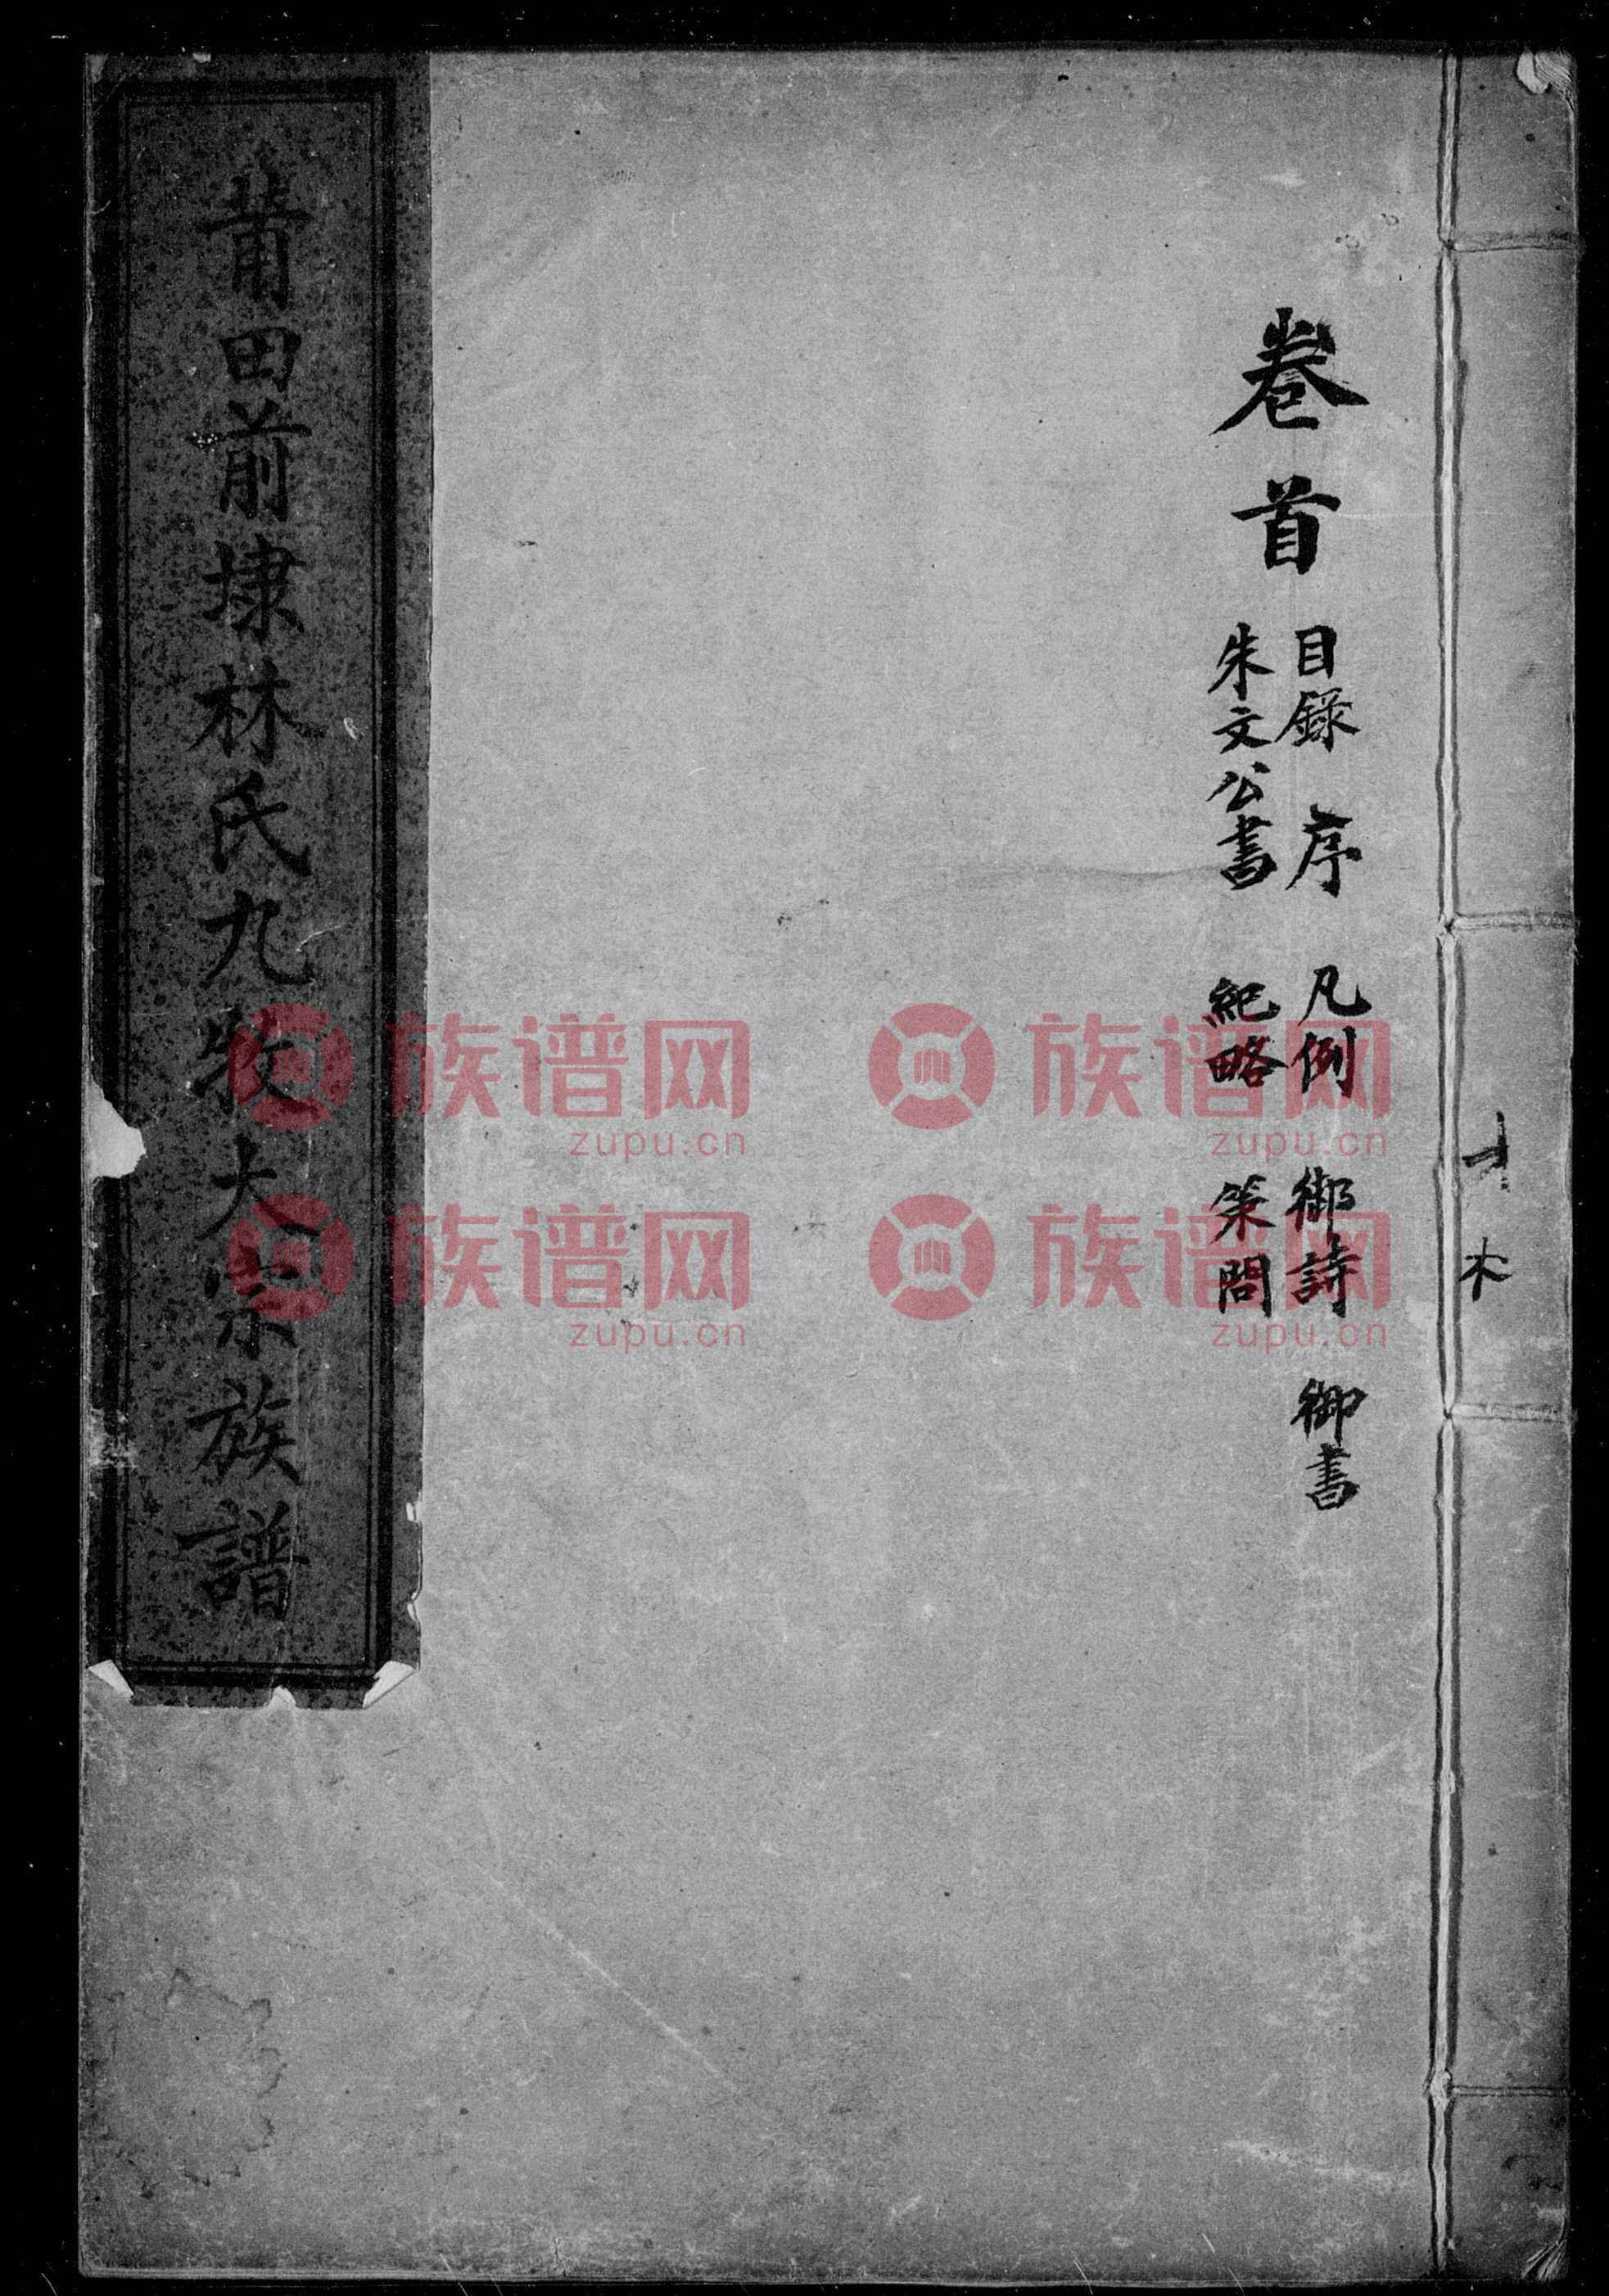 卷首
目錄 序 凡例 御詩 御書
朱文公書 紀略 策問
莆田前埭林氏九牧大宗族譜
族谱网 族谱网
zupu.cn zupu.cn
族谱网 族谱网
zupu.cn zupu.cn